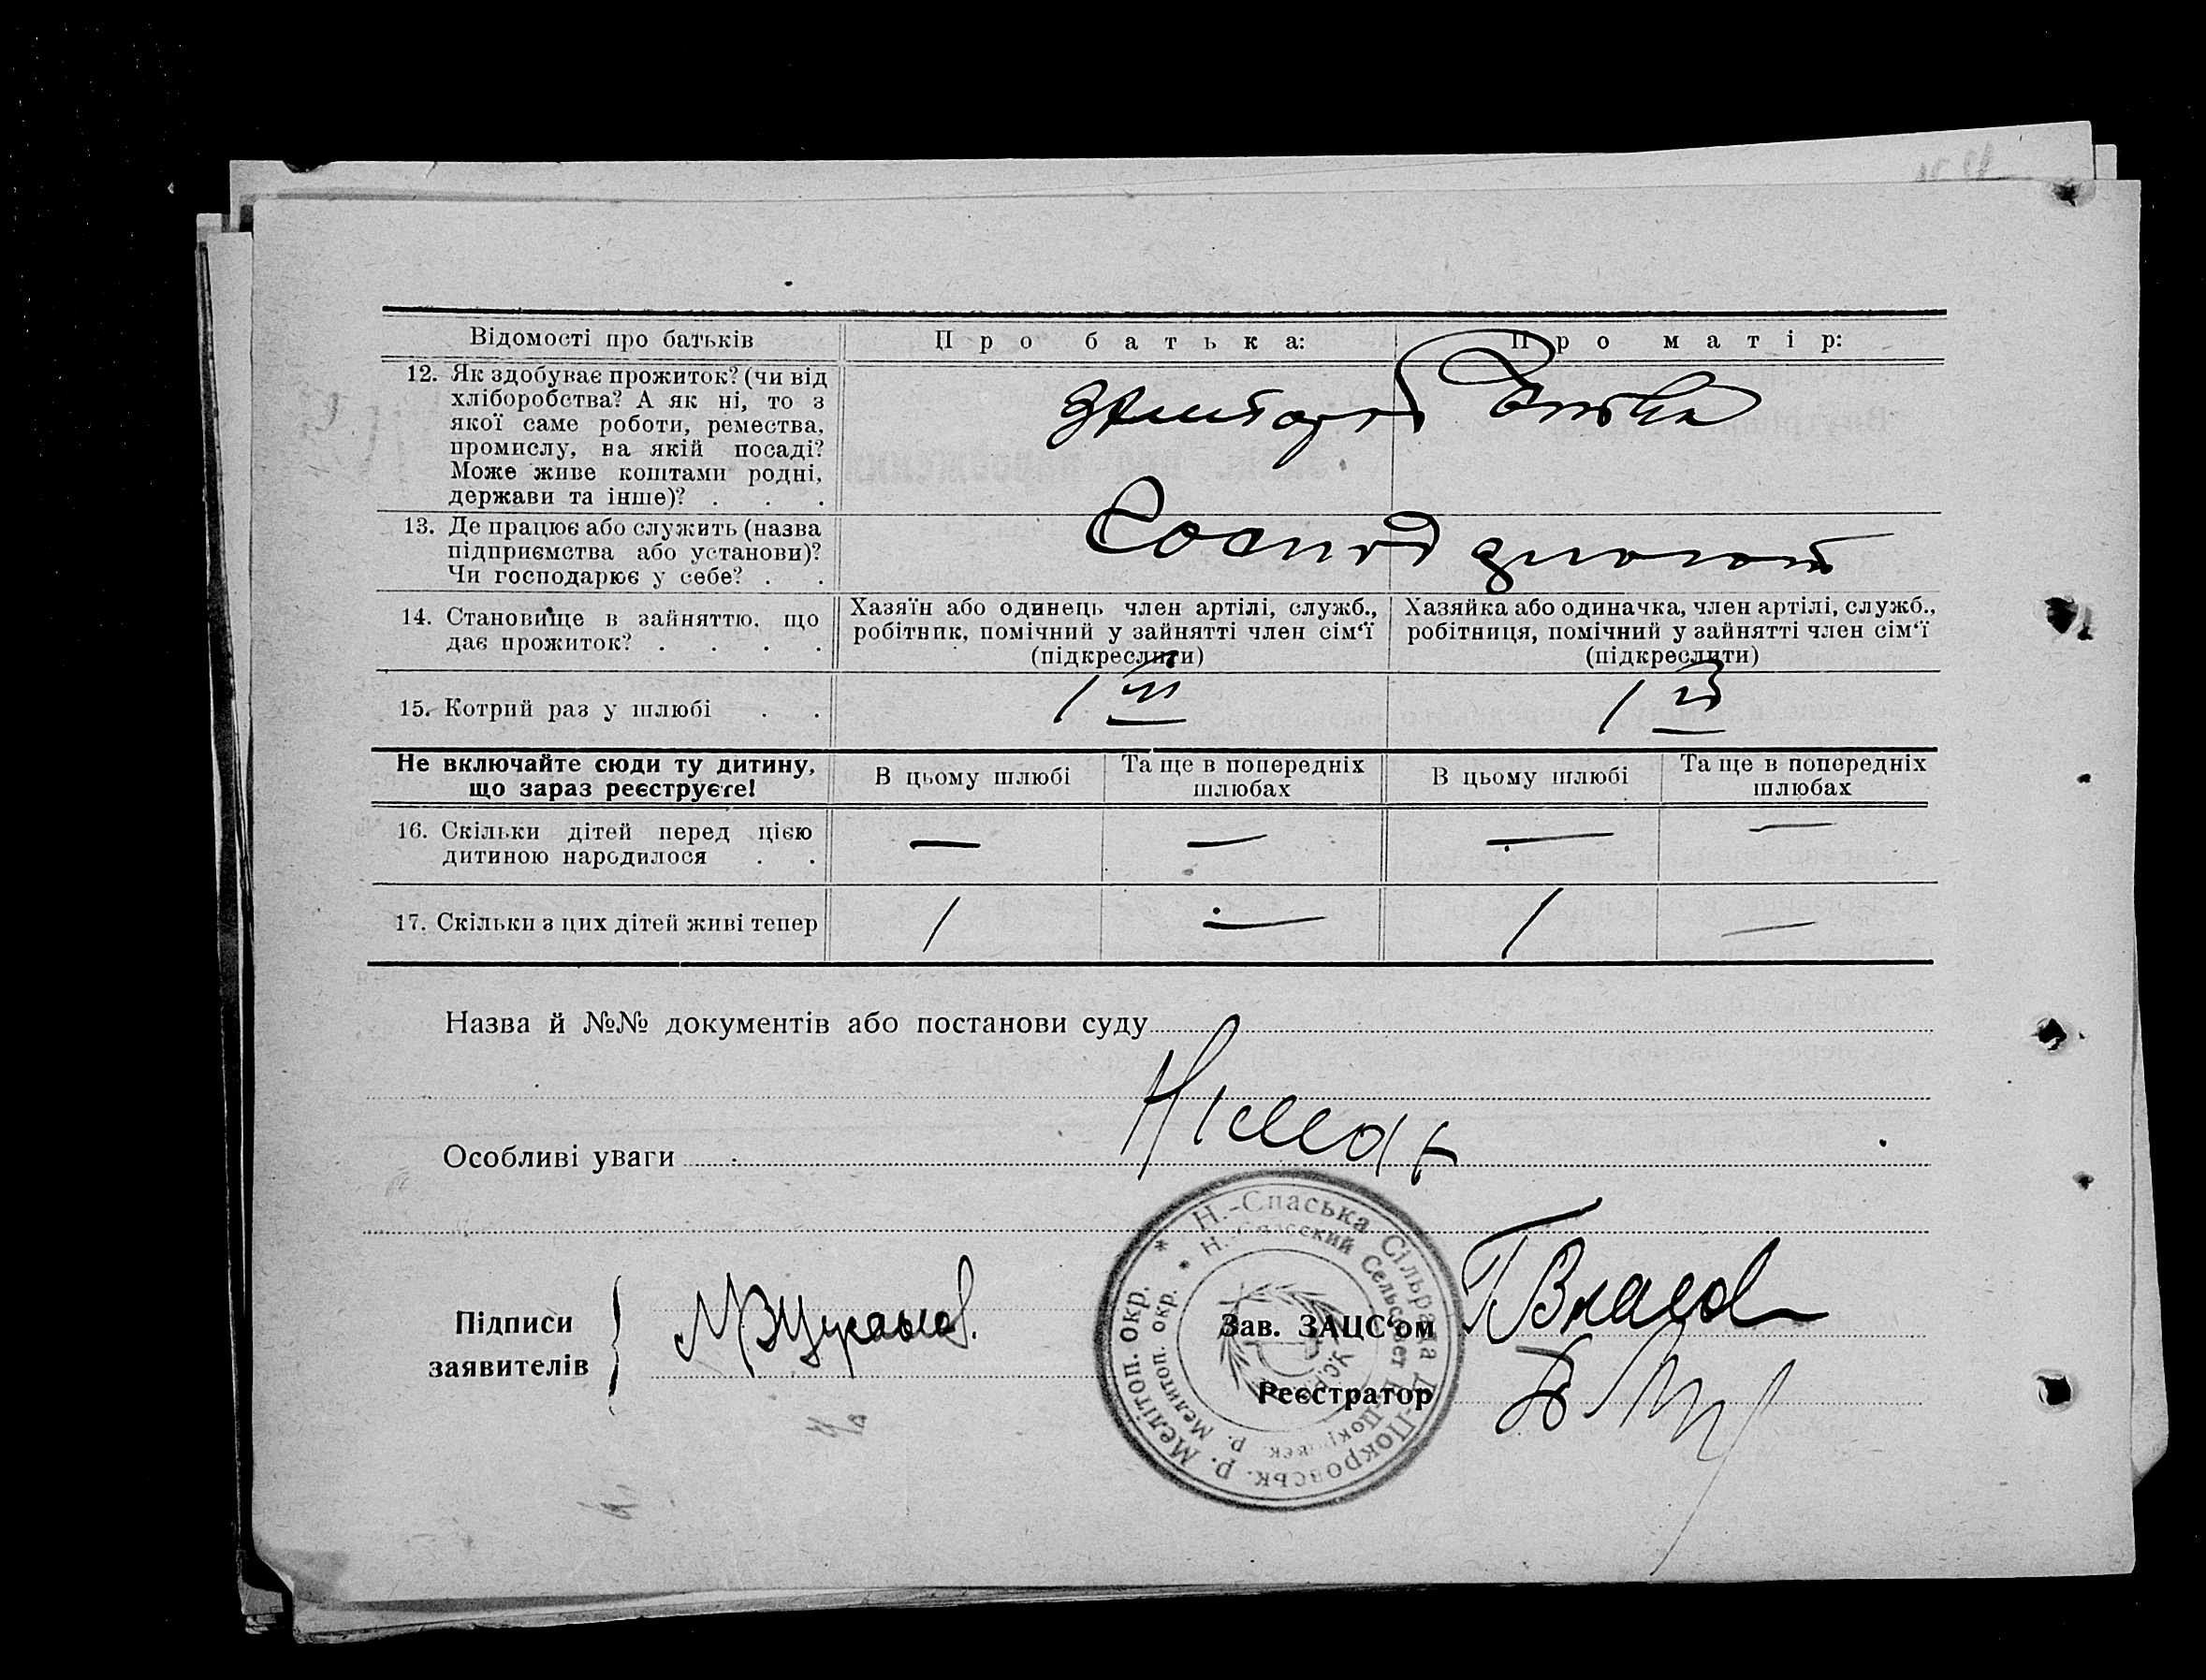 Відомості про батьків
Про батька:
Про матір:
12. Як здобуває прожиток? (чи від
хліборобства? А як ні, то з
якої саме роботи, ремества,
промислу, на якій посаді?
Може живе коштами родні,
держави та інше)? . . .
13. Де працює або служить (назва
підприємства або установи)?
Чи господарює у себе? . .
14. Становище в зайняттю, що
дає прожиток? . . . .
Хазяїн або одинець член артілі, служб.,
робітник, помічний у зайнятті член сім‘ї
(підкреслити)
Хазяйка або одиначка, член артілі, служб.,
робітниця, помічний у зайнятті член сім‘ї
(підкреслити)
15. Котрий раз у шлюбі . .
1 й
1 й
Не включайте сюди ту дитину,
що зараз реєструєте!
В цьому шлюбі
Та ще в попередніх
шлюбах
В цьому шлюбі
Та ще в попередніх
шлюбах
16. Скільки дітей перед цією
дитиною народилося . .
— — — —
17. Скільки з цих дітей живі тепер
1 — 1 —
Назва й №№ документів або постанови суду
Особливі уваги
Підписи
заявителів
Зав. ЗАЦС‘ом
Реєстратор
* Н.-Спаська Сільрада В.-Покровськ. р. Мелітоп. окр.
* Н. Спасский Сельсовет В.-Покровск. р. Мелитоп. окр.